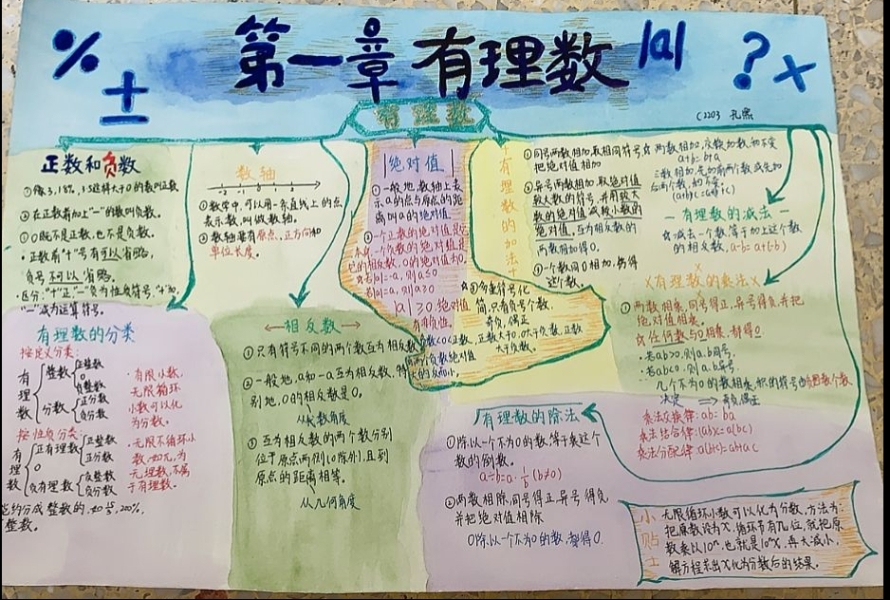 第一章 有理数 |a|
% ± ? ×
C2203
有理数
正数和负数
②在正数前加上"-"的数叫负数。
③0既不是正数,也不是负数。
·正数前"+"号有可以省略,
负号不可以省略。
·区分:"+"正"-"负为性质符号,"+"加,
"-"减为运算符号。
数轴
-2 -1 0 1 2
①数学中,可以用一条直线上的点
表示数,叫做数轴。
②数轴要有原点,正方向和
单位长度。
|绝对值|
①一般地,数轴上表
示a的点与原点的距
离叫a的绝对值。
②一个正数的绝对值是它
本身,一个负数的绝对值是
它的相反数,0的绝对值为0。
|a|≥0 绝对值
有非负性。
多重符号化
简,只有负号个数,
奇负,偶正
正数大于0,0大于负数,正数
大于负数。
两个负数绝对值
有理数的加法
①同号两数相加,取相同符号,
把绝对值相加
②异号两数相加,取绝对值
较大数的符号,并用较大
数的绝对值减较小数的
绝对值,互为相反数的
两数相加得0。
③一个数同0相加,仍得
这个数。
☆两数相加,交换加数,和不变
a+b=b+a
三数相加,先加前两个数或先加
后两个数,和不变
(a+b)+c=a+(b+c)
-有理数的减法-
☆减去一个数等于加上这个数
的相反数,a-b=a+(-b)
×有理数的乘法×
①两数相乘,同号得正,异号得负,并把
绝对值相乘。
☆任何数与0相乘,都得0
·若ab>0,则a.b同号。
·若ab<0,则a.b异号。
几个不为0的数相乘,积的符号由负因数个数
决定 ⇒奇负偶正
乘法交换律:ab=ba
乘法结合律:(ab)c=a(bc)
乘法分配律:a(b+c)=ab+ac
有理数的分类
按定义分类:
有理数 整数 正整数
0
负整数
分数 正分数
负分数
·有限小数,
无限循环
小数可以化
为分数。
按性质分类:
有理数 正有理数 正整数
正分数
0
负有理数 负整数
负分数
·无限不循环小
数,如π,为
无理数,不属
于有理数。
整数。
相反数
①只有符号不同的两个数互为相反数
②一般地,a和-a互为相反数,特
别地,0的相反数是0。
从代数角度
③互为相反数的两个数分别
位于原点两侧(0除外),且到
原点的距离相等。
从几何角度
有理数的除法
①除以一个不为0的数,等于乘这个
数的倒数。
a÷b=a·1/b(b≠0)
②两数相除,同号得正,异号得负,
并把绝对值相除
0除以一个不为0的数,都得0.
小贴士
无限循环小数可以化为分数,方法为:
把原数设为x,循环节有n位,就把原
数乘以10ⁿ,也就是10ⁿx,再大减小,
解方程求出x化为分数后的结果。